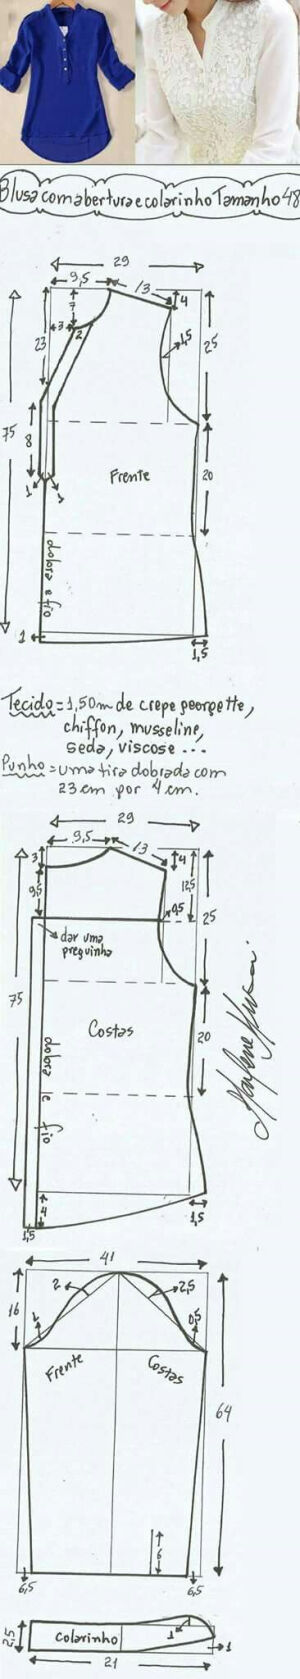 Blusa com abertura e colarinho Tamanho 48
29
9,5
13
4
7
3
2
23
1,5
25
75
8
1
1
Frente
20
dobra e fio
1
1,5
Tecido = 1,50m de crepe georgette,
chiffon, musseline,
seda, viscose ...
Punho = uma tira dobrada com
23 cm por 4 cm.
29
9,5
13
3
4
12,5
9,5
0,5
25
dar uma
preguinha
75
Costas
20
dobra e fio
4
1,5
1,5
41
16
2
2,5
1
0,5
Frente
Costas
64
6
6,5
6,5
2,5
colarinho
1
1
21